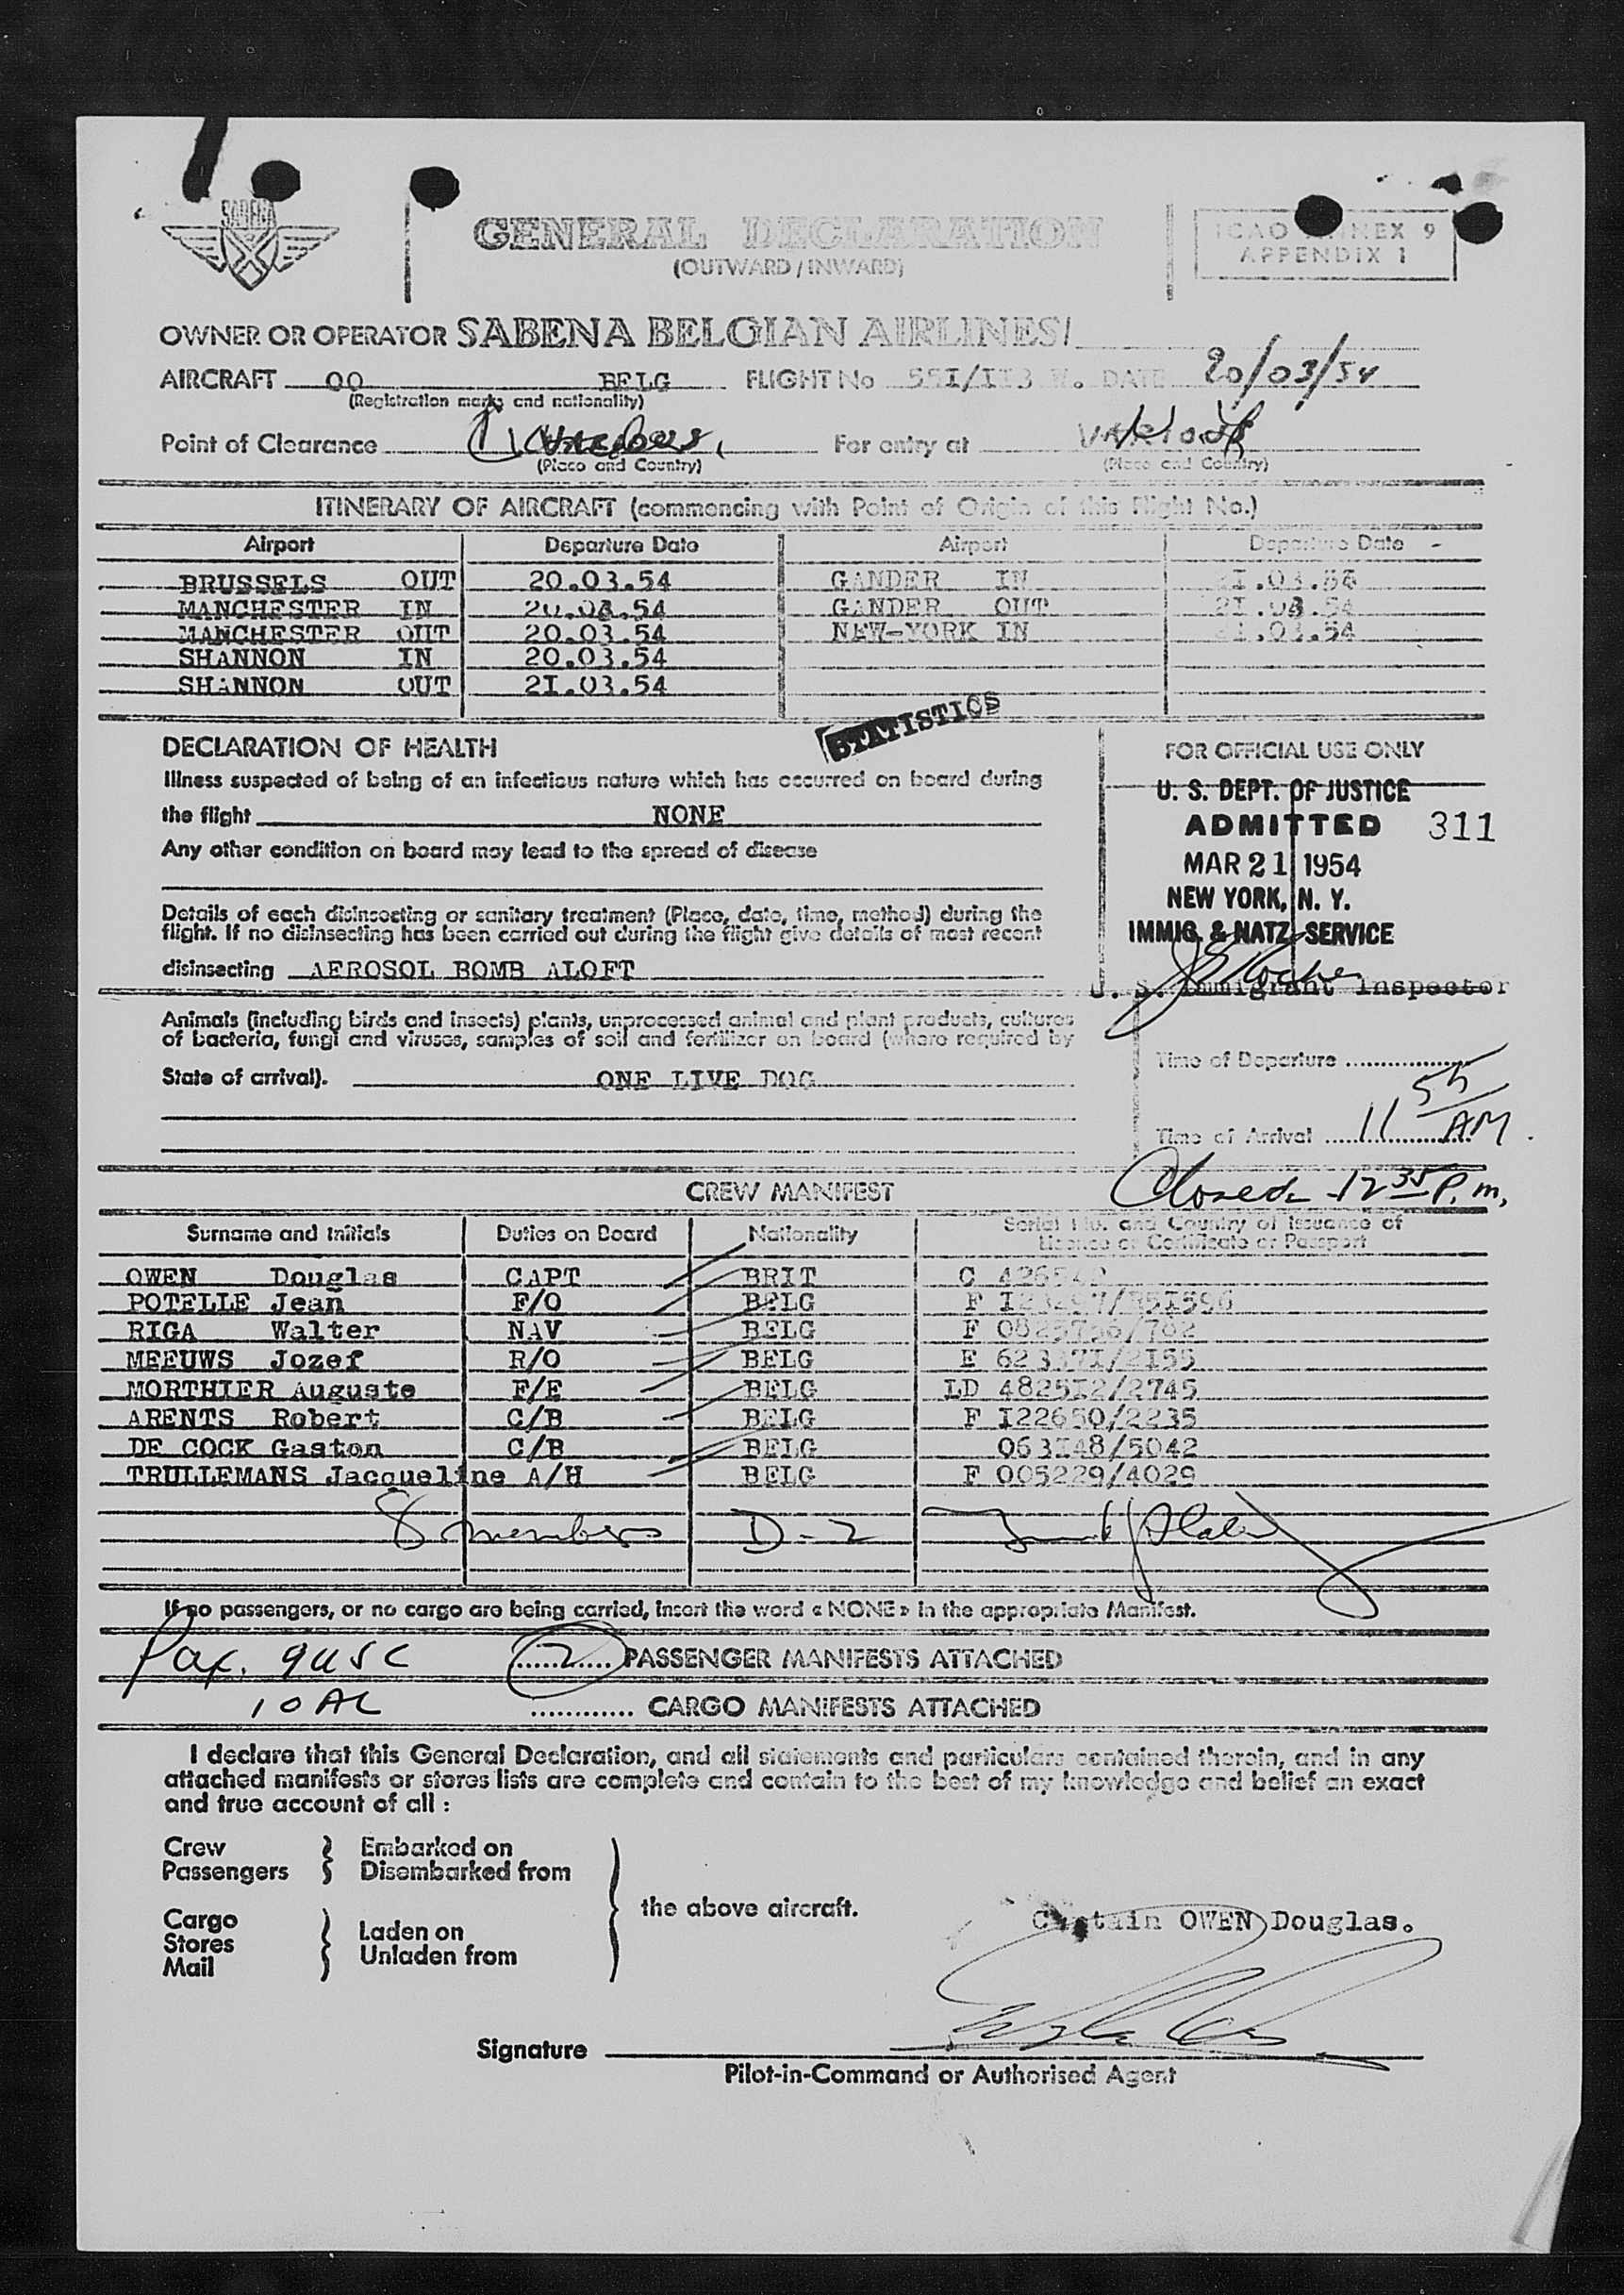 SABENA
GENERAL DECLARATION
(OUTWARD / INWARD)
ICAO ANNEX 9
APPENDIX 1
OWNER OR OPERATOR SABENA BELGIAN AIRLINES/
AIRCRAFT OO BELG FLIGHT No 551/113 W. DATE 20/03/54
(Registration marks and nationality)
Point of Clearance For entry at VARIOUS
(Place and Country) (Place and Country)
ITINERARY OF AIRCRAFT (commencing with Point of Origin of this Flight No.)
Airport Departure Date Airport Departure Date
BRUSSELS OUT 20.03.54 GANDER IN 2I.03.54
MANCHESTER IN 20.03.54 GANDER OUT 2I.03.54
MANCHESTER OUT 20.03.54 NEW-YORK IN 2I.03.54
SHANNON IN 20.03.54
SHANNON OUT 2I.03.54
STATISTICS
DECLARATION OF HEALTH
Illness suspected of being of an infectious nature which has occurred on board during
the flight NONE
Any other condition on board may lead to the spread of disease
Details of each disinsecting or sanitary treatment (Place, date, time, method) during the
flight. If no disinsecting has been carried out during the flight give details of most recent
disinsecting AEROSOL BOMB ALOFT
Animals (including birds and insects) plants, unprocessed animal and plant products, cultures
of bacteria, fungi and viruses, samples of soil and fertilizer on board (where required by
State of arrival). ONE LIVE DOG
FOR OFFICIAL USE ONLY
U. S. DEPT. OF JUSTICE
ADMITTED 311
MAR 21 1954
NEW YORK, N. Y.
IMMIG. & NATZ. SERVICE
U. S. Immigrant Inspector
Time of Departure
Time of Arrival 11 55 AM
Closed - 12 35 P.m.
CREW MANIFEST
Surname and Initials Duties on Board Nationality Serial No. and Country of Issuance of
Licence or Certificate or Passport
OWEN Douglas CAPT BRIT C
POTELLE Jean F/O BELG F
RIGA Walter NAV BELG F
MEEUWS Jozef R/O BELG E
MORTHIER Auguste F/E BELG LD 4825I2/2745
ARENTS Robert C/B BELG F I22650/2235
DE COCK Gaston C/B BELG 063I48/5042
TRULLEMANS Jacqueline A/H BELG F 005229/4029
8 members D-2
If no passengers, or no cargo are being carried, insert the word « NONE » in the appropriate Manifest.
Pax. 9 USC 2 PASSENGER MANIFESTS ATTACHED
10 AL CARGO MANIFESTS ATTACHED
I declare that this General Declaration, and all statements and particulars contained therein, and in any
attached manifests or stores lists are complete and contain to the best of my knowledge and belief an exact
and true account of all :
Crew Embarked on
Passengers Disembarked from
the above aircraft.
Cargo Laden on
Stores Unladen from
Mail
Captain OWEN Douglas.
Signature
Pilot-in-Command or Authorised Agent